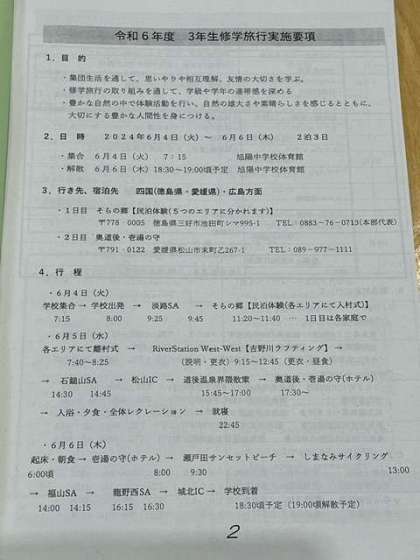 令和６年度　3年生修学旅行実施要項
１．目　的
・集団生活を通して、思いやりや相互理解、友情の大切さを学ぶ。
・修学旅行の取り組みを通して、学級や学年の連帯感を深める
・豊かな自然の中で体験活動を行い、自然の雄大さや素晴らしさを感じるとともに、
大切にする豊かな人間性を身につける。
２．日　時　２０２４年６月４日（火）　～　６月６日（木）　２泊３日
・集合　６月４日（火）　７：１５　旭陽中学校体育館
・解散　６月６日（木）18:30～19:00頃予定　旭陽中学校体育館
３．行き先、宿泊先　四国(徳島県・愛媛県)・広島方面
・１日目　そらの郷【民泊体験(５つのエリアに分かれます)】
〒778‐0005　徳島県三好市池田町シマ995-1　TEL:0883－76－0713(本部代表)
・２日目　奥道後・壱湯の守
〒791-0122　愛媛県松山市末町乙267-1　TEL：089－977－1111
４．行　程
・６月４日（火）
学校集合 → 学校出発　→　淡路SA　→　そらの郷【民泊体験(各エリアにて入村式)】
7:15　8:00　9:25　9:45　11:20～11:40　…　1日目は各家庭で
・６月５日（水）
各エリアにて離村式　→　RiverStation West-West【吉野川ラフティング】　→
7:40～8:25　（説明・更衣）9:15～12:45（更衣・昼食）
→　石鎚山SA　→　松山IC　→　道後温泉界隈散策　→　奥道後・壱湯の守(ホテル)
14:30　14:45　15:45～17:00　17:30～
→　入浴・夕食・全体レクレーション　→　就寝
22:45
・６月６日（木）
起床・朝食 → 壱湯の守(ホテル)　→　瀬戸田サンセットビーチ　→　しまなみサイクリング
6:00頃　8:00　9:30　13:00
→　福山SA　→　龍野西SA　→　城北IC →　学校到着
14:00　14:15　16:15　16:30　18:30頃予定（19:00頃解散予定）
2